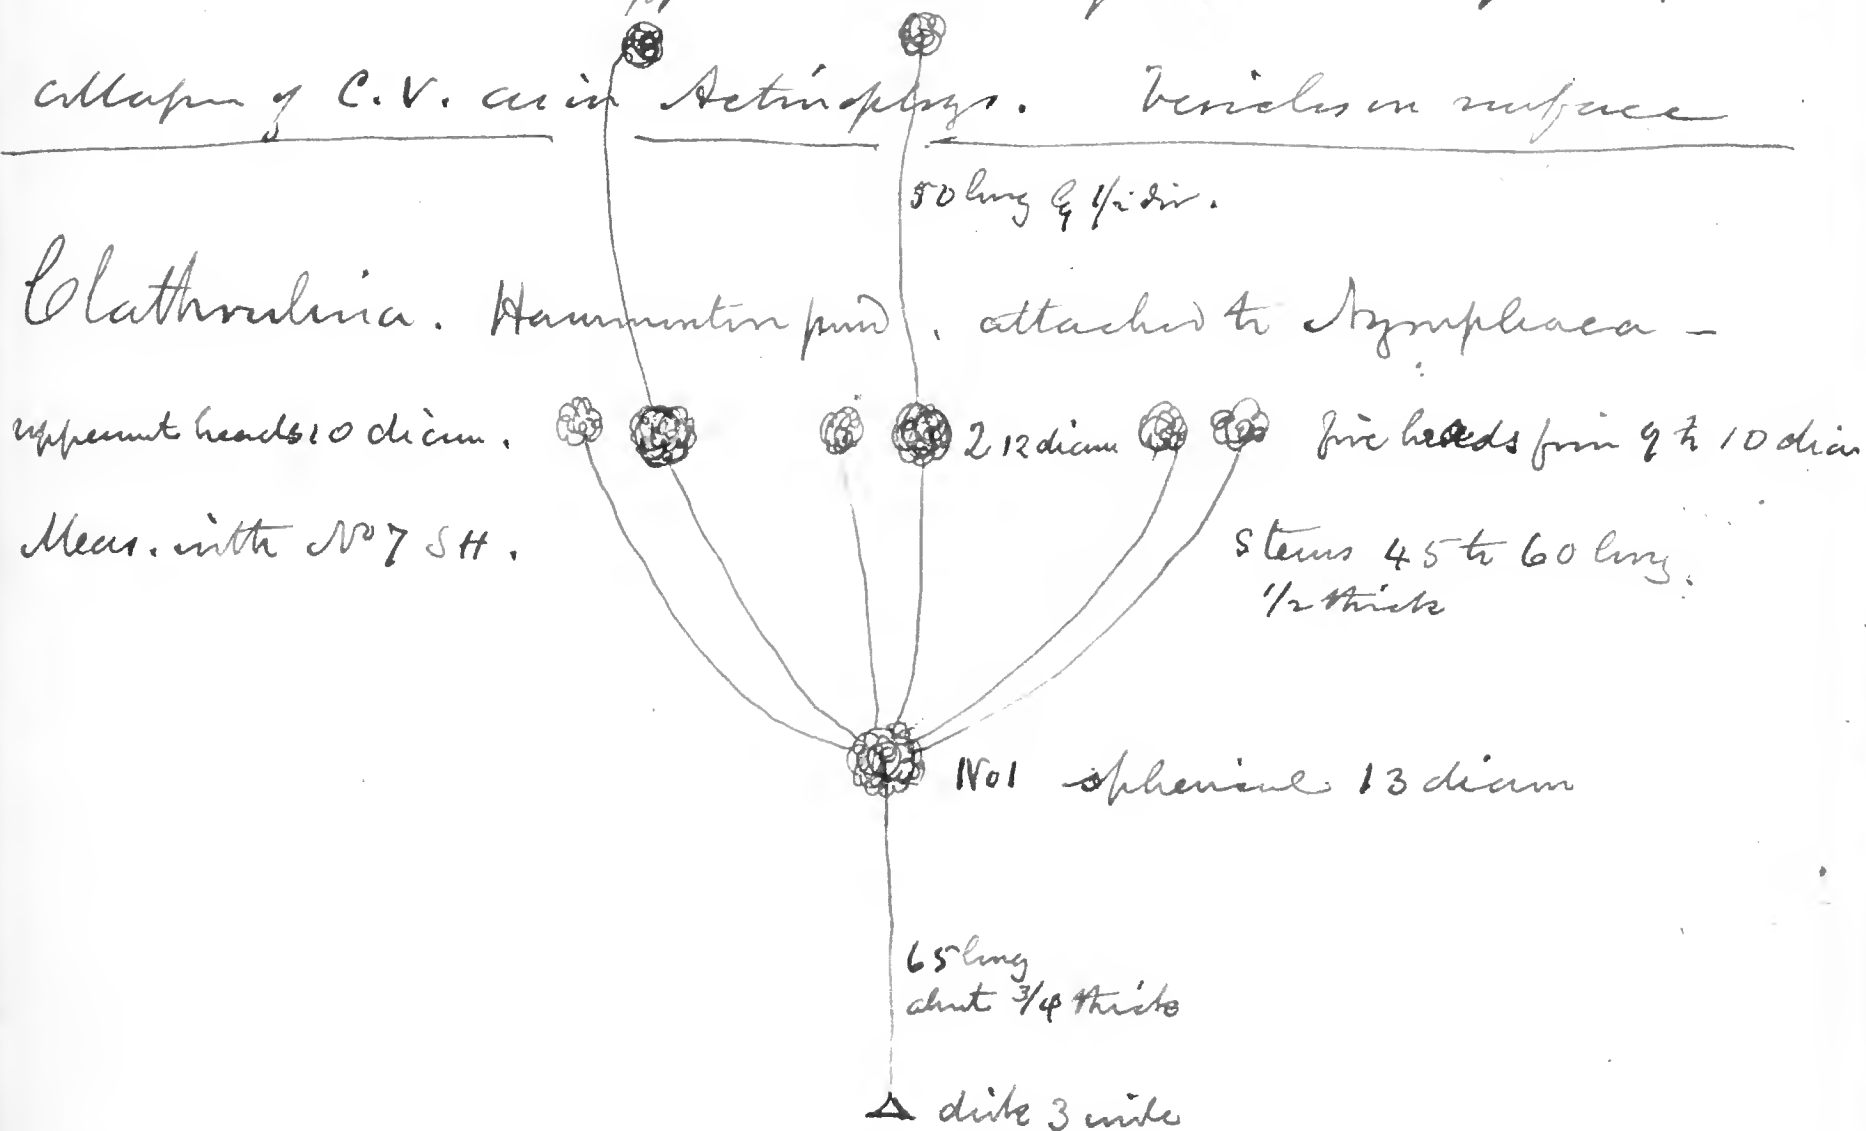 collapse of C.V. as in Actinophrys. Vesicles on surface
50 long by 1/2 div.
Clathrulina. Hammonton pond, attached to Nymphaea –
uppermost heads 10 diam.
2 12 diam
five heads from 9 to 10 diam
Meas. with No 7 SH.
Stems 45 to 60 long.
1/2 thick
No 1 spherical 13 diam
65 long
about 3/4 thick
disk 3 wide